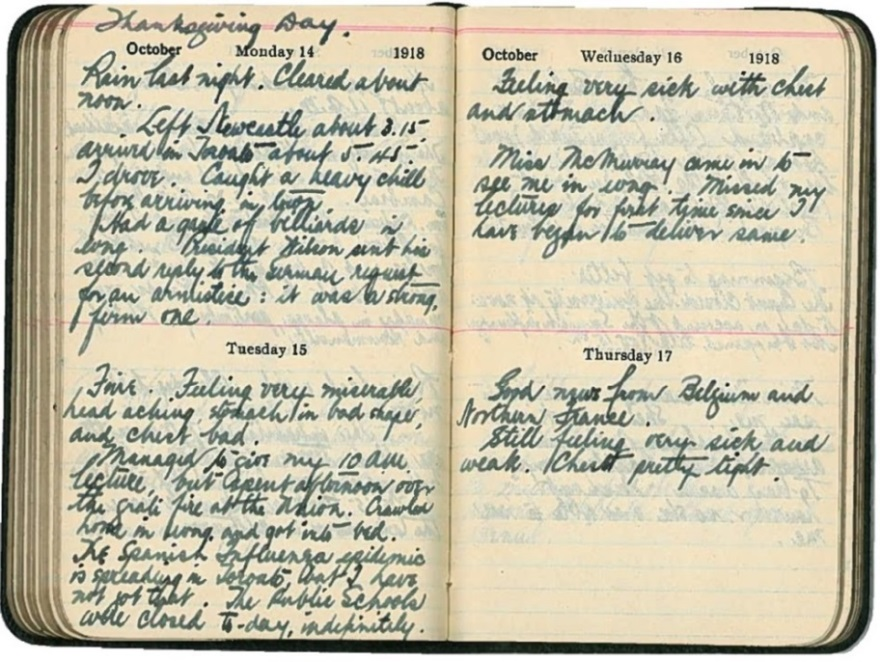 Thanksgiving Day.
October Monday 14 1918
Rain last night. Cleared about
noon.
Left Newcastle about 3.15
arrived in Toronto about 5.45.
I drove. Caught a heavy chill
before arriving in town
Had a game of billiards in
evng. President Wilson sent his
second reply to the German request
for an armistise: it was a strong,
firm one.
Tuesday 15
Fine. Feeling very miserable,
head aching stomach in bad shape,
and chest bad.
Managed to give my 10 AM
lecture, but spent afternoon over
the grate fire at the Union. Crawled
home in evng and got into bed.
The Spanish Influenza epidemic
is spreading in Toronto, but I have
not got that. The Public Schools
were closed to-day, indefinitely.
October Wednesday 16 1918
Feeling very sick with chest
and stomach.
Miss McMurray came in to
see me in evng. Missed my
lectures for first time since I
have began to deliver same.
Thursday 17
Good news from Belgium and
Northern France.
Still feeling very sick and
weak. Chest pretty tight.